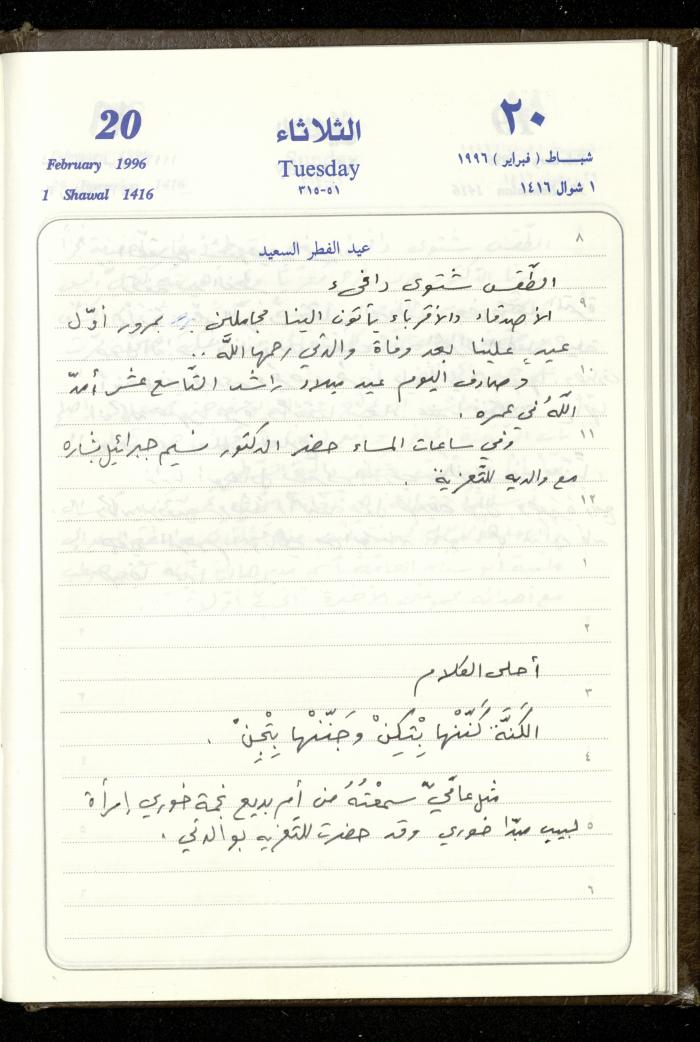 20
الثلاثاء
٢٠
February 1996
Tuesday
شبـــاط ( فبراير ) ١٩٩٦
1 Shawal 1416
٥١-٣١٥
١ شوال ١٤١٦
٨
عيد الفطر السعيد
الطَّقس شتوي دافىء
٩
الأصدقاء والأقرباء يأتون الينا مجاملين بمرور أوّل
عيدٍ علينا بعد وفاة والدتي رحمها اللّه ..
١٠
وصادف اليوم عيد ميلاد راشد التَّاسع عشر أمدّ
اللّهُ في عمره .
١١
وفي ساعات المساء حضر الدكتور نسيم جبرائيل بشاره
مع والديه للتَّعزية .
١٢
١
٢
أحلى الكلام
٣
الكَنَّة كَنِّنْها بِتْكِنْ وجَنِّنْها بِتْجِنْ .
٤
مثل عاميّ سمعْتُهُ من أم بديع نجمة خوري إمرأة
٥
لبيب مبدّا خوري وقد حضرت للتَّعزيه بوالدتي .
٦